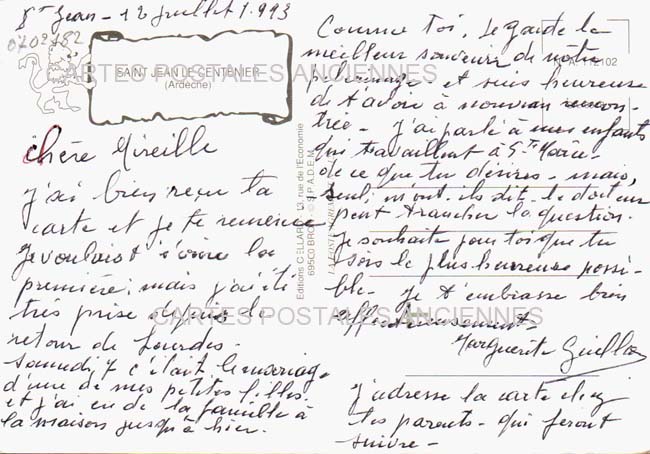 St Jean - 12 juillet 1.993
0702182
SAINT JEAN LE CENTENIER
(Ardèche)
CARTES POSTALES ANCIENNES
chère Mireille
j'ai bien reçu ta
carte et je te remercie
Je voulais t'écrire la
première, mais j'ai été
très prise depuis le
retour de Lourdes.
Samedi, c'était le mariage
d'une de mes petites filles.
et j'ai eu de la famille à
la maison jusqu'à hier.
Editions CELLARD, 13, rue de l'Economie
69500 BRON - © S.P.A.D.E.M.
Comme toi, je garde le
meilleur souvenir de notre
pélerinage - et suis heureuse
de t'avoir à nouveau rencon-
trée - J'ai parlé à mes enfants
qui travaillent à Ste Marie -
de ce que tu désires - mais,
seul, m'ont-ils dit - le docteur
peut trancher la question.
Je souhaite pour toi que tu
sois le plus heureuse possi-
ble - Je t'embrasse bien
affectueusement
Marguerite
CARTES POSTALES ANCIENNES
J'adresse la carte chez
tes parents - qui feront
suivre -